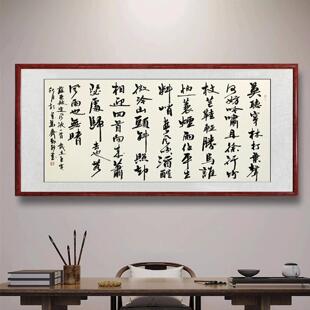 莫聽穿林打葉聲
何妨吟嘯且徐行竹
杖芒鞋輕勝馬誰
怕一蓑煙雨任平生
料峭春風吹酒醒
微冷山頭斜照却
相迎回首向來蕭
瑟處歸去也無
風雨也無晴
蘇東坡定風波一首